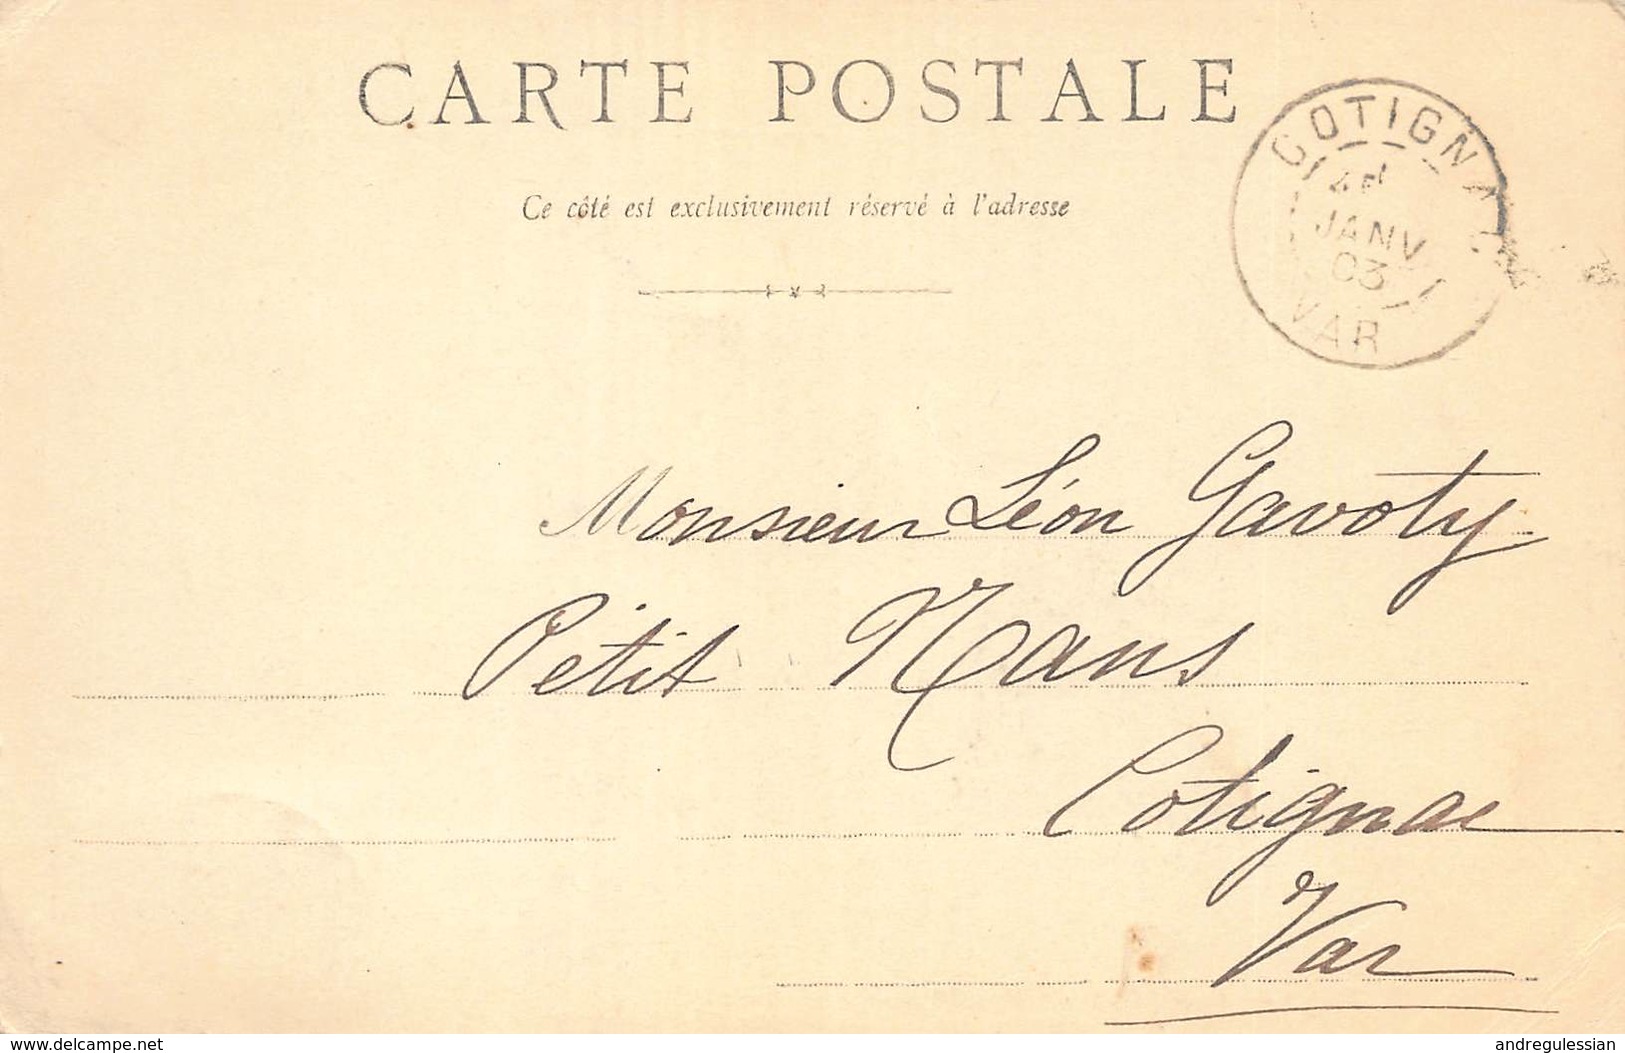 CARTE POSTALE
Ce côté est exclusivement réservé à l'adresse
COTIGNAC
JANV
03
VAR
Monsieur Léon Gavoty
Petit Nans
Cotignac
Var
delcampe.net
andregulessian